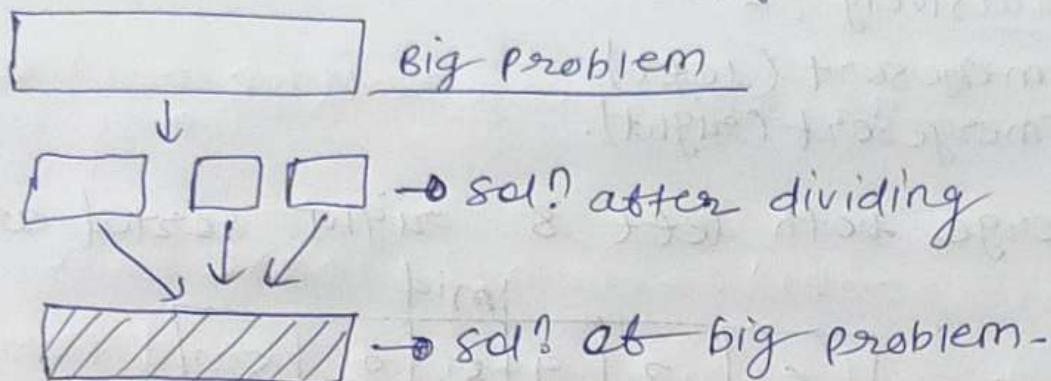 Big problem
→ sol? after dividing
→ sol? of big problem.